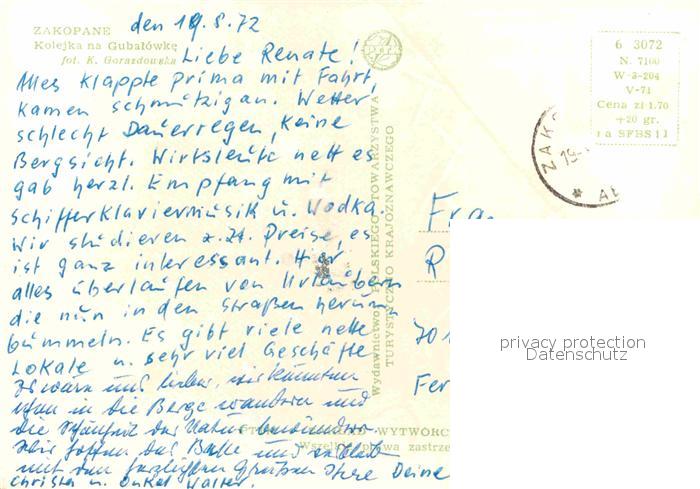 ZAKOPANE
Kolejka na Gubałówkę
fot. K. Gorazdowska
den 19.8.72
Liebe Renate!
Alles klappte prima mit Fahrt,
kamen schmutzig an. Wetter
schlecht Dauerregen, keine
Bergsicht. Wirtsleute nett es
gab herzl. Empfang mit
Schifferklaviermusik u. Wodka.
Wir studieren z.Zt. Preise, es
ist ganz interessant. Hier
alles überlaufen von Urlaubern
die nun in den Straßen herum
bummeln. Es gibt viele nette
Lokale u. sehr viel Geschäfte
Es wäre uns lieber, wir könnten
schon in die Berge wandern und
die Schönheit der Natur bewundern
Wir hoffen das Beste und
mit den herzlichsten Grüßen Deine
Christa u. Onkel Walter.
Wydawnictwo POLSKIEGO TOWARZYSTWA
TURYSTYCZNO KRAJOZNAWCZEGO
WYTWÓRC
Wszelkie prawa zastrze
6 3072
N. 7100
W-3-204
V-71
Cena zł 1.70
+20 gr.
SFBS 11
ZAK
19
Fra
R
701
Fer
privacy protection
Datenschutz